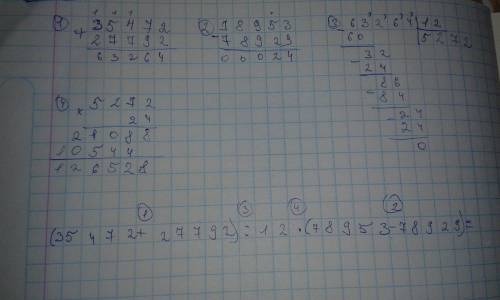 ① 1 1 1
+ 3 5 4 7 2
2 7 7 9 2
6 3 2 6 4
② - 7 8 9 5 3
7 8 9 2 9
0 0 0 2 4
③ - 6 3 2 6 4 | 1 2
6 0 | 5 2 7 2
- 3 2
2 4
- 8 6
8 4
- 2 4
2 4
0
④ × 5 2 7 2
2 4
2 1 0 8 8
1 0 5 4 4
1 2 6 5 2 8
① ③ ④ ②
(35 472+ 27792) : 12 · (78953-78929)=